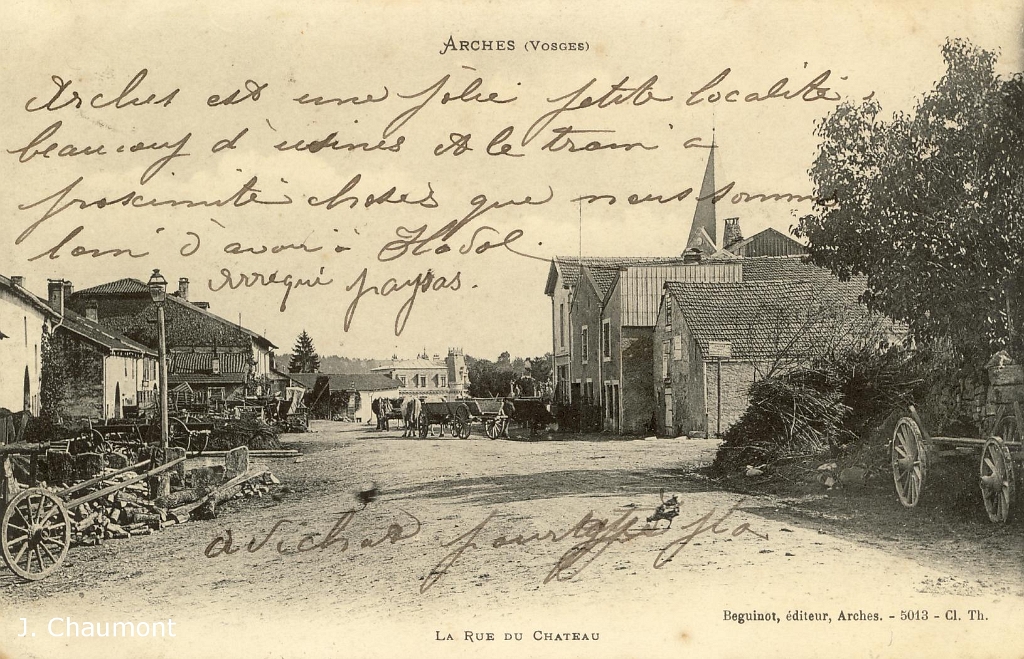 ARCHES (VOSGES)
Arches est une jolie petite localité,
beaucoup d'usines et le train a
proximité choses que nous somme
loin d'avoir à Hadol.
arréqui paysas.
a vichat pour
J. Chaumont
LA RUE DU CHATEAU
Beguinot, éditeur, Arches. - 5013 - Cl. Th.